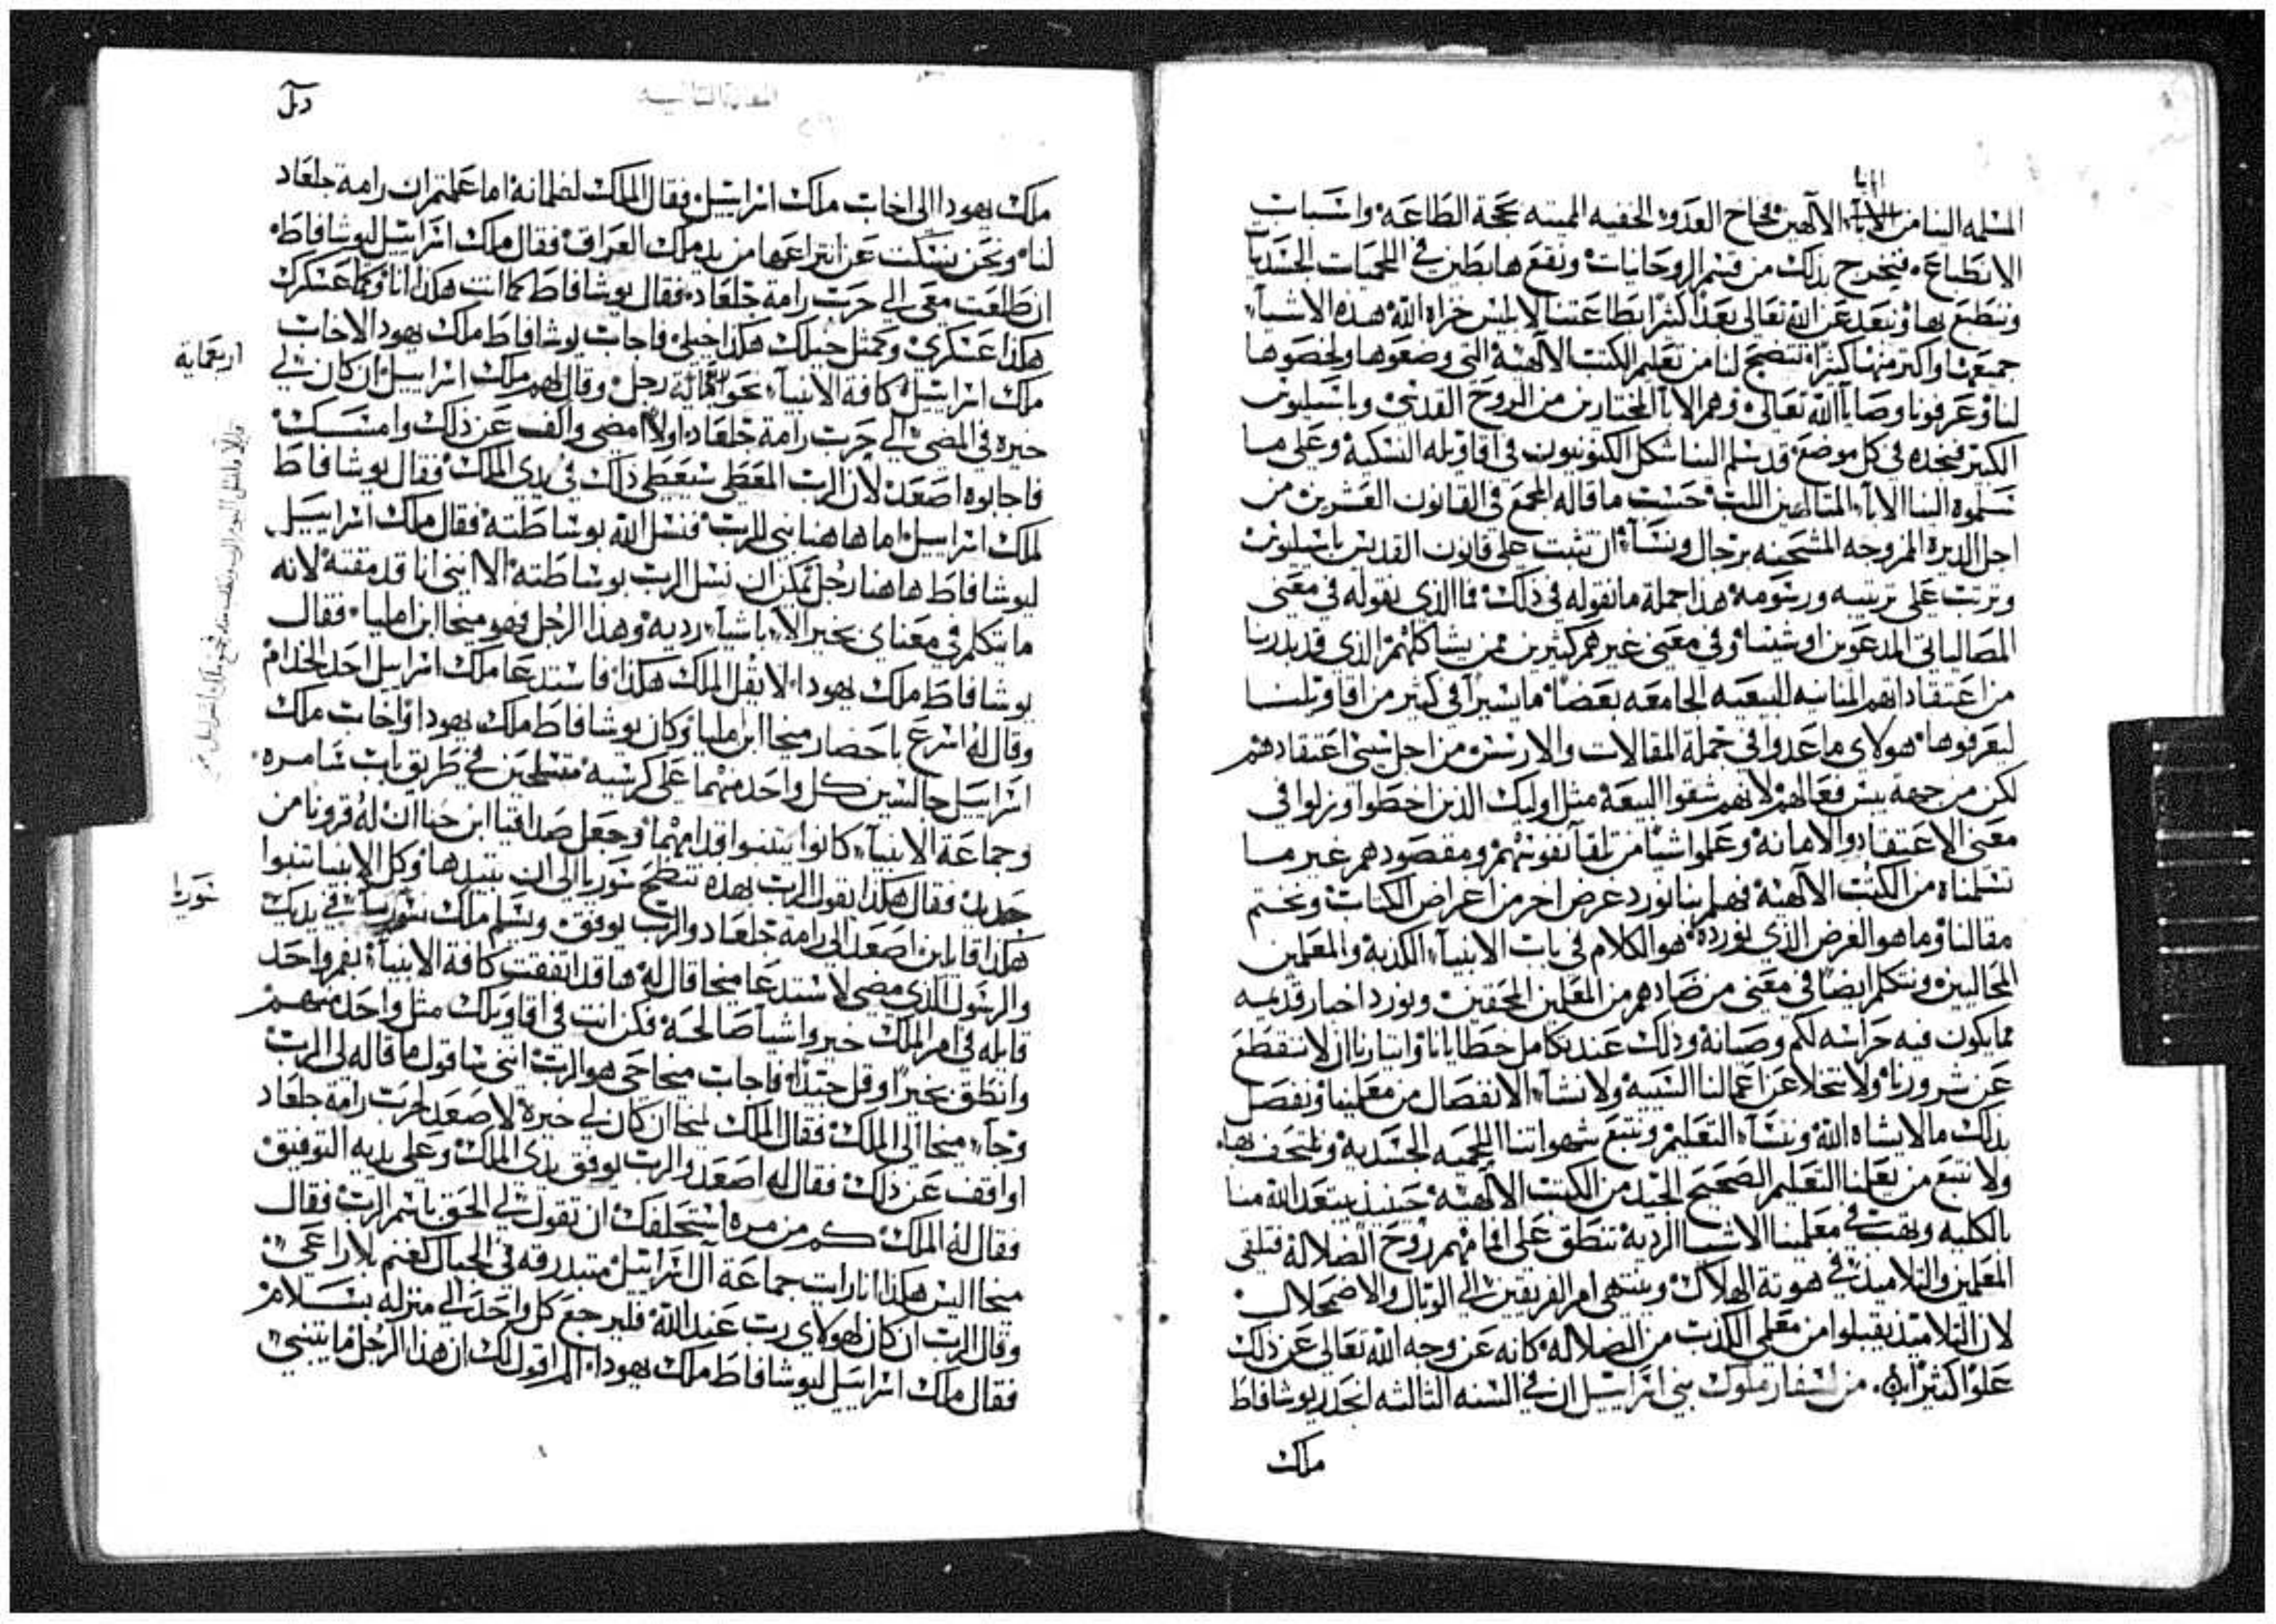 الابا
المسلمه الينا من الآباء الالهين فخاخ العدو الخفيه المميته بحجة الطاعه واسباب
الانطباع فيخرج بذلك من قسم الروحانيات ونقع هابطين في اللحميات الجسديات
وننطبع بها ونبعد عن الله تعالى بعدًا كثيرًا بطاعتنا لابليس خزاه الله هذه الاشيآء
جميعها واكثر منها كثيرًا تتضح لنا من تعليم الكتب الالهية التي وضعوها ولخصوها
لنا وعرفونا وصايا الله تعالى وهم الابآ المختارين من الروح القدس وباسيليوس
الكبير فنجده في كل موضع قد سلم الينا شكل الكنونيون في اقاويله النسكية وعلى ما
تسلموه الينا الابآء المتالهين اللب حسب ما قاله المجمع في القانون العشرين من
اجل الديرة المزوجه المشحنه برجال ونسآء ان تثبت على قانون القديس باسيليوس
وترتب على ترتيبه ورسومه هذا جملة ما نقوله في ذلك فما الذي نقوله في معنى
المصالياني المدعوين اوشيتا وفي معنى غيرهم كثيرين ممن يشاكلهم الذي قد بدرنا
من اعتقاداتهم المنابيه للبيعيه الجامعه بعضًا ما يسيرًا في كثير من اقاويلنا
ليعرفوها هولاى ما عدوا في جملة المقالات والارسس من اجل سىى اعتقادهم
لكن من جهة بيس فعالهم لانهم شقوا البيعة مثل اوليك الذين اخطوا وزلوا في
معنى الاعتقاد والامانه وعملوا اشيا من تلقآ نفوسهم ومقصودهم غير ما
تسلمناه من الكتب الالهية فهلم بنا نورد عرض اخر من اعراض الكتاب ونختم
مقالنا وما هو الغرض الذي نورده هو الكلام في باب الانبيآء الكذبة والمعلمين
المحاليين ونتكلم ايضًا في معنى من ضادهم من المعلمين المحقين ونورد اخبار قديمه
مما يكون فيه حراسه لكم وصيانة وذلك عند تكامل خطايانا وايثارنا ان لا ننقطع
عن شرورنا ولا نتخلا عن اعمالنا السيية ولا نشآء الانفصال من معلمينا ونفصل
بذلك ما لا يشاه الله وننسآء التعليم ونتبع شهواتنا اللحميه الجسدية ونلتحف بها
ولا نتبع من يعلمنا التعليم الصحيح الجيد من الكتب الالهية حينيذ يبتعد الله منا
بالكليه ويهب في معلمينا الاشيا الردية تنطق على افامهم روح الضلالة فتلقى
المعلمين والتلاميذ في هوتة الهلاك وينتهى امر الفريقين الى الوبال والاضمحلال
لان التلاميذ يقبلوا من معلمي الكذب من الضلالة كانه عن وجه الله تعالى عن ذلك
علوًا كثيرًا من اسفار ملوك بني اسراييل ان في السنه الثالثه انحدر يوشافاط
ملك
ملك يهودا الى اخاب ملك اسراييل فقال الملك لغلمانه اما علمتم ان رامة جلعاد
لنا ونحن نسكت عن انتزاعها من يد ملك العراق فقال ملك اسراييل ليوشافاط
ان طلعت معي الى حرب رامة جلعاد فقال يوشافاط كما انت هكذا انا وكما عسكرك
هكذا عسكري وكمثل خيلك هكذا خيلي فاجاب يوشافاط ملك يهودا لاخاب
ملك اسراييل كافة الانبيآء نحو اربعماية رجل وقال لهم ملك اسراييل ان كان لي
خيره في المضي الى حرب رامة جلعاد اولا امضي واقف عن ذلك وامسك
فاجابوه اصعد لان الرب المعطي سيعطي ذلك في يدي الملك فقال يوشافاط
لملك اسراييل اما هاهنا نبي للرب فنسل الله بوساطته فقال ملك اسراييل
ليوشافاط هاهنا رجل يمكن ان نسل الرب بوساطته الا انني انا قد مقته لانه
ما يتكلم في معناي بخير الا باشيآء ردية وهذا الرجل فهو ميخا ابن امليا فقال
يوشافاط ملك يهودا لا يقل الملك هكذا فاستدعا ملك اسراييل احد الخدام
وقال له اسرع باحضار ميخا ابن امليا وكان يوشافاط ملك يهودا واخاب ملك
اسراييل جالسين كل واحد منهما على كرسيه متسلحين في طريق باب سامره
وجماعة الانبيآء كانوا يتنبوا قدامهما وجعل صداقيا ابن حنآان له قرونا من
حديد فقال هكذا يقول الرب بهذه تنطح سوريا الى ان تبيدها وكل الانبيا تنبوا
هكذا قايلين اصعد الى رامة جلعاد والرب يوفق ويسلم ملك سوريا في يديك
والرسول الذي مضى لاستدعا ميخا قال له ها قد اتفقت كافة الانبيآء بفم واحد
قايله في امر الملك خير واشيا صالحة فكن انت في اقاويلك مثل واحد منهم
وانطق بخير وقل جيدًا فاجاب ميخا حي هو الرب انني ساقول ما قاله لي الرب
وجآء ميخا الى الملك فقال الملك لميخا ان كان لي خيرة لاصعد لحرب رامة جلعاد
او اقف عن ذلك فقال له اصعد والرب يوفق يدي الملك وعلى يديه التوفيق
فقال له الملك كم من مره استحلفك ان تقول لي الحق باسم الرب فقال
ميخا ليس هكذا انا رايت جماعة آل اسراييل متبدرقه في الجبال كغنم بلا راعي
وقال الرب ان كان لهولاي رب عند الله فليرجع كل واحد الى منزله بسلام
فقال ملك اسراييل ليوشافاط ملك يهودا الم اقول لك ان هذا الرجل ما يتنبى
اربعماية
سوريا